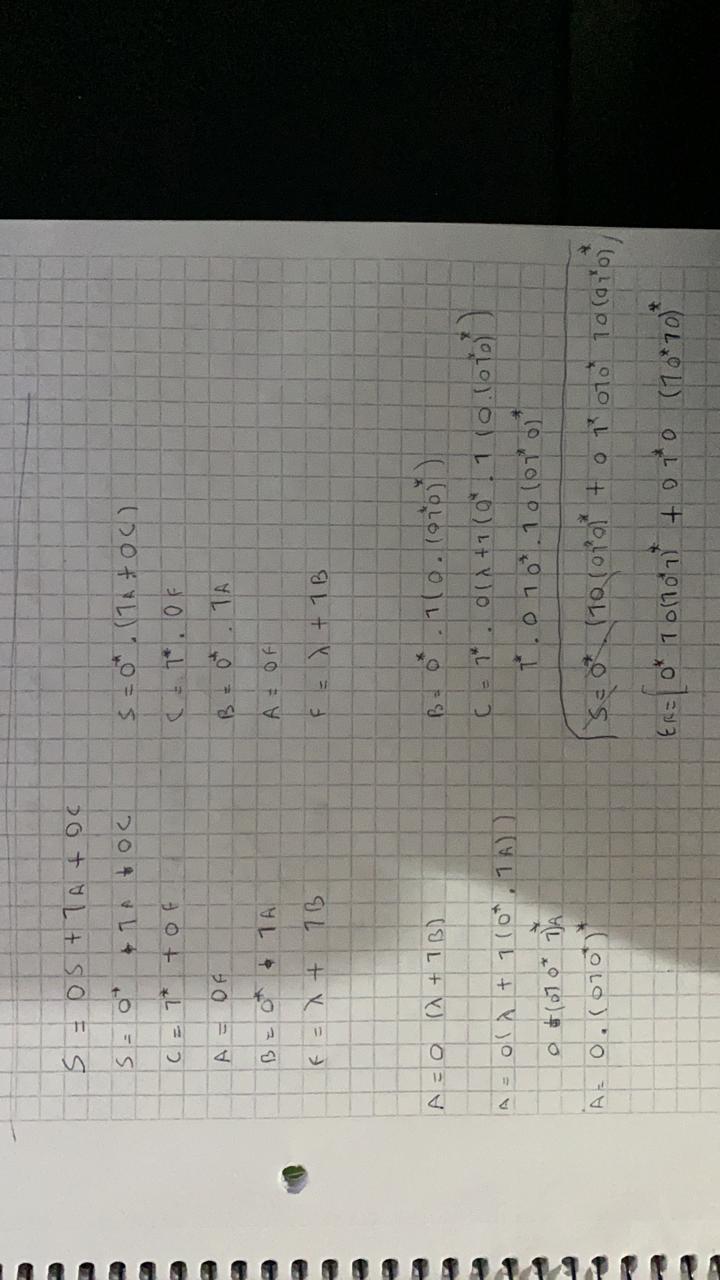 S = 0S + 1A + 0C
S = 0* + 1A + 0C
C = 1* + 0F
A = 0F
B = 0* + 1A
F = λ + 1B
A = 0 (λ + 1B)
A = 0(λ + 1(0* . 1A))
A = 0.(010*)*
S = 0* . (1A + 0C)
C = 1* . 0F
B = 0* . 1A
A = 0F
F = λ + 1B
B = 0* . 1(0.(010*)*)
C = 1* . 0(λ + 1(0* . 1(0.(010*)*))
1* . 010* . 10(01*0)*
S = 0* (10(01*0)* + 01* 010* 10(01*0)*)
ER = [0* 10(10*1)* + 01*0 (10*10)*